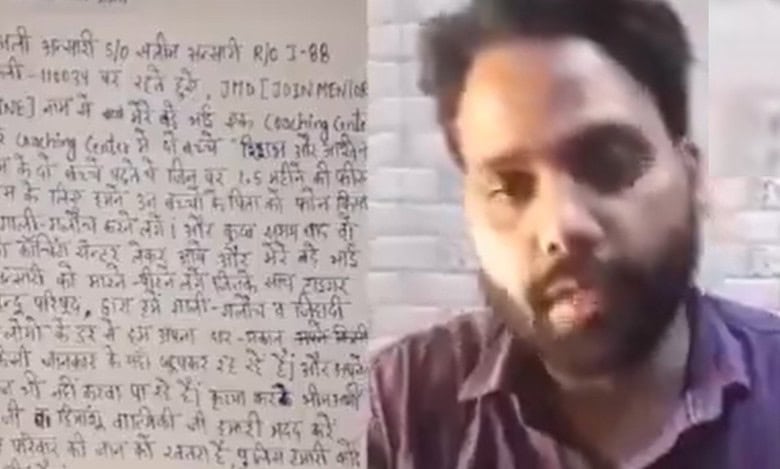 अली अन्सारी S/O सलीम अन्सारी R/O J-88
ली-110034 पर रहते हुये, JMD [JOIN MENTOR
INE] नाम से मेरे बड़े भाई एक Coaching Cente
Coaching Center में दो बच्चे और
के दो बच्चे पढ़ते थे जिन पर 1.5 महीने की फीस
के लिए हमने उन बच्चों के पिता को फोन किया
गाली-गलौच करने लगे। और कुछ समय बाद वो
कोचिंग सेन्टर लेकर आये और मेरे बड़े भाई
न्सारी को मारने-पीटने लगे जिनके साथ टाइगर
न्दू परिषद, द्वारा हमें गाली-गलौच व जिहादी
लोगों के डर से हम अपना घर-मकान
किसी जानकार के यहाँ छुपकर रह रहे हैं। और
भी नहीं करवा पा रहे हैं। कृपा करके भीम
जी हिमांशु वाल्मिकी जी हमारी मदद करें
परिवार को जान का खतरा है, पुलिस हमारी कोई